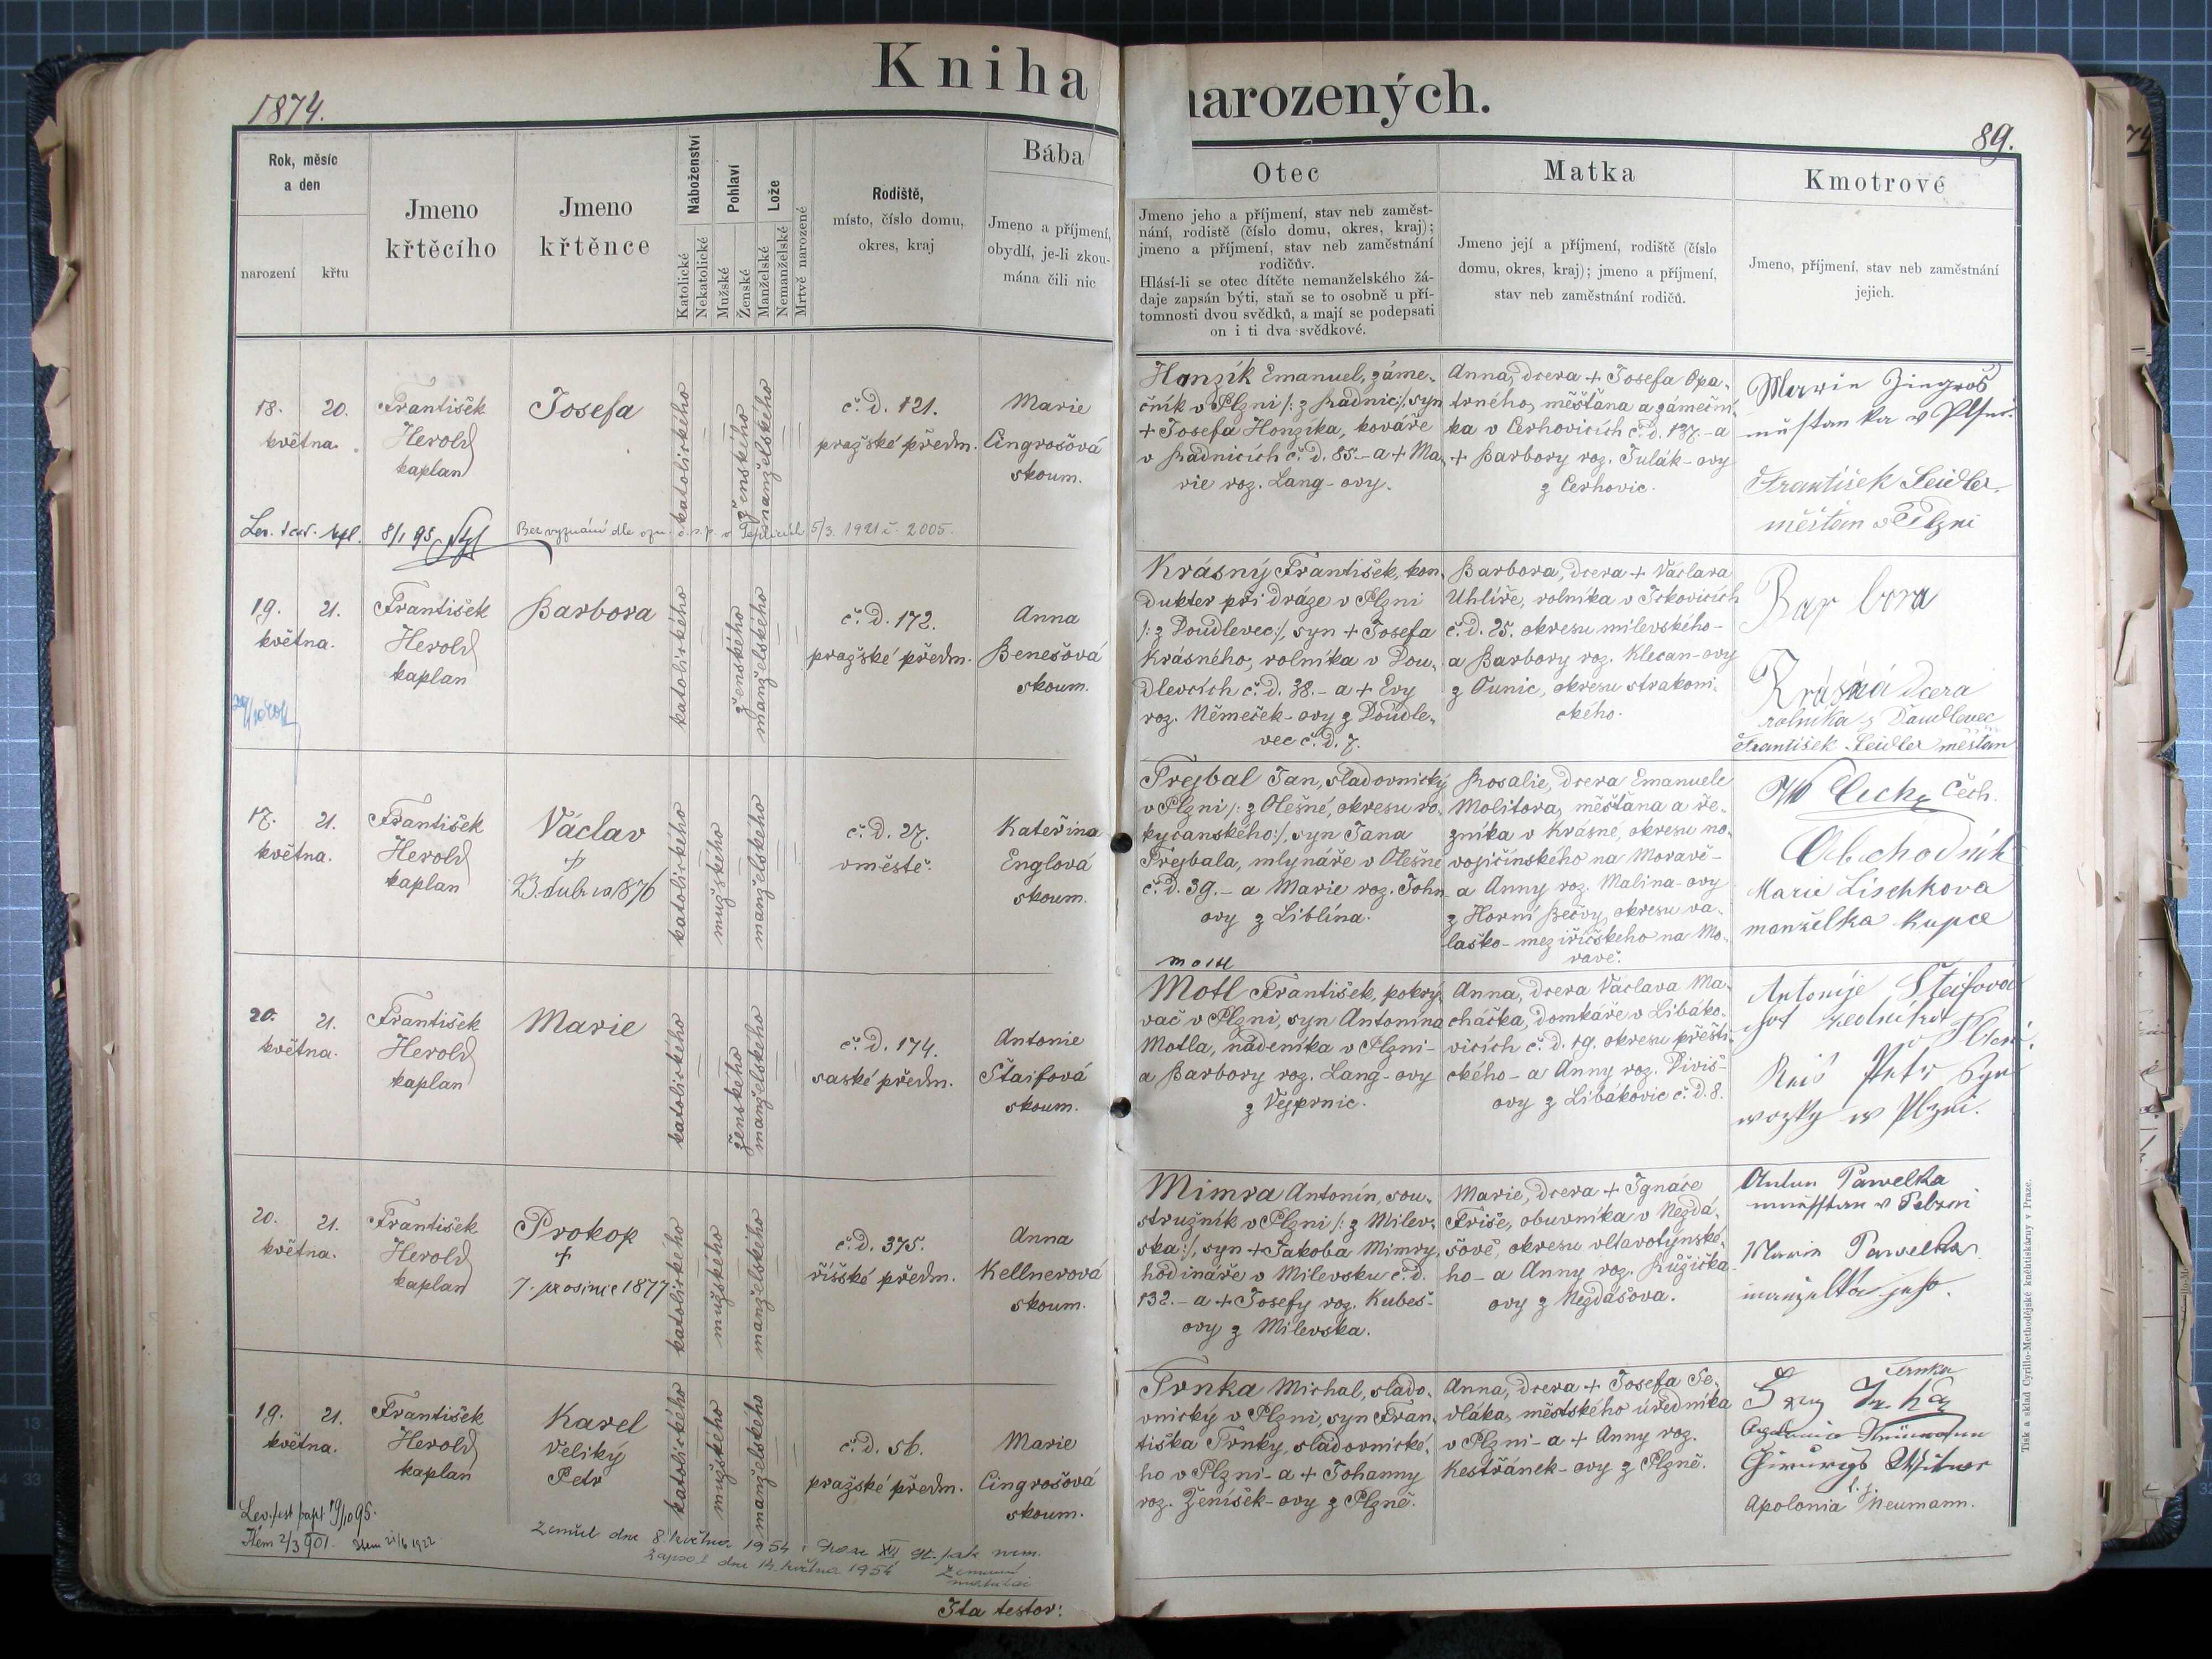 Kniha narozených.
1874.
89.
Rok, měsíc
a den
narození
křtu
Jmeno
křtěcího
Jmeno
křtěnce
Náboženství
Katolické
Nekatolické
Pohlaví
Mužské
Ženské
Lože
Manželské
Nemanželské
Mrtvě narozené
Rodiště,
místo, číslo domu,
okres, kraj
Bába
Jmeno a příjmení,
obydlí, je-li zkou-
mána čili nic
Otec
Jmeno jeho a příjmení, stav neb zaměst-
nání, rodistě (číslo domu, okres, kraj);
jmeno a příjmení, stav neb zaměstnání
rodičův.
Hlásí-li se otec dítěte nemanželského žá-
daje zapsán býti, staň se to osobně u pří-
tomnosti dvou svědků, a mají se podepsati
on i ti dva svědkové.
Matka
Jmeno její a příjmení, rodiště (číslo
domu, okres, kraj); jmeno a příjmení,
stav neb zaměstnání rodičů.
Kmotrové
Jmeno, příjmení, stav neb zaměstnání
jejich.
18. 20.
května.
František
Herold
kaplan
Josefa
katolického
ženského
manželského
č. d. 121.
pražské předm.
Marie
Cingrošová
skoum.
Honzík Emanuel, záme-
čník v Plzni /: z Radnic:/, syn
+ Josefa Honzíka, kováře
v Radnicích č. d. 85.- a + Ma-
rie roz. Lang-ovy.
Anna, dcera + Josefa Opa-
trného, měšťana a zámeční-
ka v Cerhovicích č. d. 137.- a
+ Barbory roz. Tulák-ovy
z Cerhovic.
František Seidler
měštan v Plzni
8/1 95
Bez vyznání dle 5/3. 1921 č. 2005.
19. 21.
května.
František
Herold
kaplan
Barbora
katolického
ženského
manželského
č. d. 172.
pražské předm.
Anna
Benešová
skoum.
Krásný František, kon-
dukter při dráze v Plzni
/: z Doudlevec:/, syn + Josefa
Krásného, rolníka v Dou-
dlevcích č. d. 38.- a + Evy
roz. Němeček-ovy z Doudle-
vec č. d. 7.
Barbora, dcera + Václava
Uhlíře, rolníka v Jrkovicích
č. d. 25. okresu milevského-
a Barbory roz. Klecan-ovy
z Čunic, okresu strakoni-
ckého.
Barbora
Krásná dcera
rolníka z Daudlevec
František Seidler měštan
17. 21.
května.
František
Herold
kaplan
Václav
+
23 dubna 1876
katolického
mužského
manželského
č. d. 27.
vměstě.
Kateřina
Englová
skoum.
Trejbal Jan, sladovnický
v Plzni /: z Olešné, okresu ro-
kycanského:/, syn Jana
Trejbala, mlynáře v Olešné
č. d. 39.- a Marie roz. John-
ovy z Liblína.
Rosalie, dcera Emanuele
Molitora, měšťana a ře-
zníka v Krásné, okresu no-
vojičínského na Moravě-
a Anny roz. Malina-ovy
z Horní Bečvy, okresu va-
laško-meziříčského na Mo-
ravě.
Čech.
Obchodník
Marie Lischkova
manželka kupce
20. 21.
května.
František
Herold
kaplan
Marie
katolického
ženského
manželského
č. d. 174.
saské předm.
Antonie
Štaifová
skoum.
Motl
Motl František, pokrý-
vač v Plzni, syn Antonína
Motla, nádeníka v Plzni-
a Barbory roz. Lang-ovy
z Vejprnic.
Anna, dcera Václava Ma-
cháčka, domkáře v Libáko-
vicích č. d. 19. okresu přešti-
ckého- a Anny roz. Diviš-
ovy z Libákovic č. d. 8.
Antonije Steifova
Petr
w Plzni.
20. 21.
května.
František
Herold
kaplan
Prokop
+
7. prosince 1877
katolického
mužského
manželského
č. d. 375.
říšské předm.
Anna
Kellnerová
skoum.
Mimra Antonín, sou-
stružník v Plzni /: z Milev-
ska:/, syn + Jakoba Mimry,
hodináře v Milevsku č. d.
132.- a + Josefy roz. Kubeš-
ovy z Milevska.
Marie, dcera + Ignáce
Friše, obuvníka v Nezdá-
šově, okresu vltavotýnské-
ho- a Anny roz. Růžička-
ovy z Nezdašova.
Antun Pawelka
Marie Pawelka
manželka jeho.
19. 21.
května.
František
Herold
kaplan
Karel
Veliký
Petr
katolického
mužského
manželského
č. d. 56.
pražské předm.
Marie
Cingrošová
skoum.
Trnka Michal, slado-
vnický v Plzni, syn Fran-
tiška Trnky, sladovnické-
ho v Plzni- a + Johanny
roz. Ženíšek-ovy z Plzně.
Anna, dcera + Josefa Se-
dláka, městského úředníka
v Plzni- a + Anny roz.
Kestřánek-ovy z Plzně.
Trnka
Apolonia Neumann.
19/10 95.
Item 2/3 901. Item 21/6 1922
Zemřel dne 8. května 1954
Zapsal dne 14. května 1954
Ita testor:
Tisk a sklad Cyrillo-Methodějské knihtiskárny v Praze.